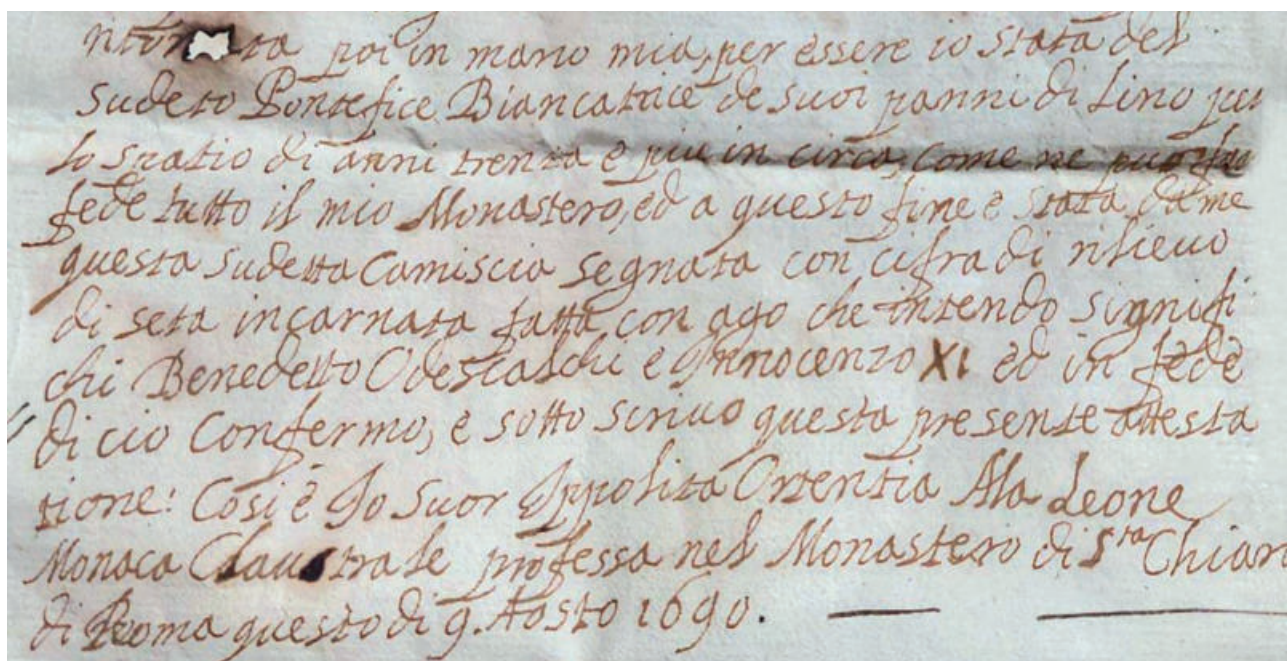 poi in mano mia, per essere io stata del
Sudeto Pontefice Biancatrice de suoi panni di Lino per
lo spatio di anni trenta è piu in circa, come ne può far
fede tutto il mio Monastero, ed a questo fine è stata da me
questa sudetta Camiscia segnata con cifra di rilieuo
di seta incarnata fatta con ago che intendo signifi
chi Benedetto Odescalchi e Innocenzo XI ed in fede
di cio Confermo, e sotto scriuo questa presente attesta
tione: Cosi è Io Suor Ippolita Ortentia Ala Leone
Monaca Claustrale professa nel Monastero di S.ta Chiara
di Roma questo di 9. Aosto 1690.